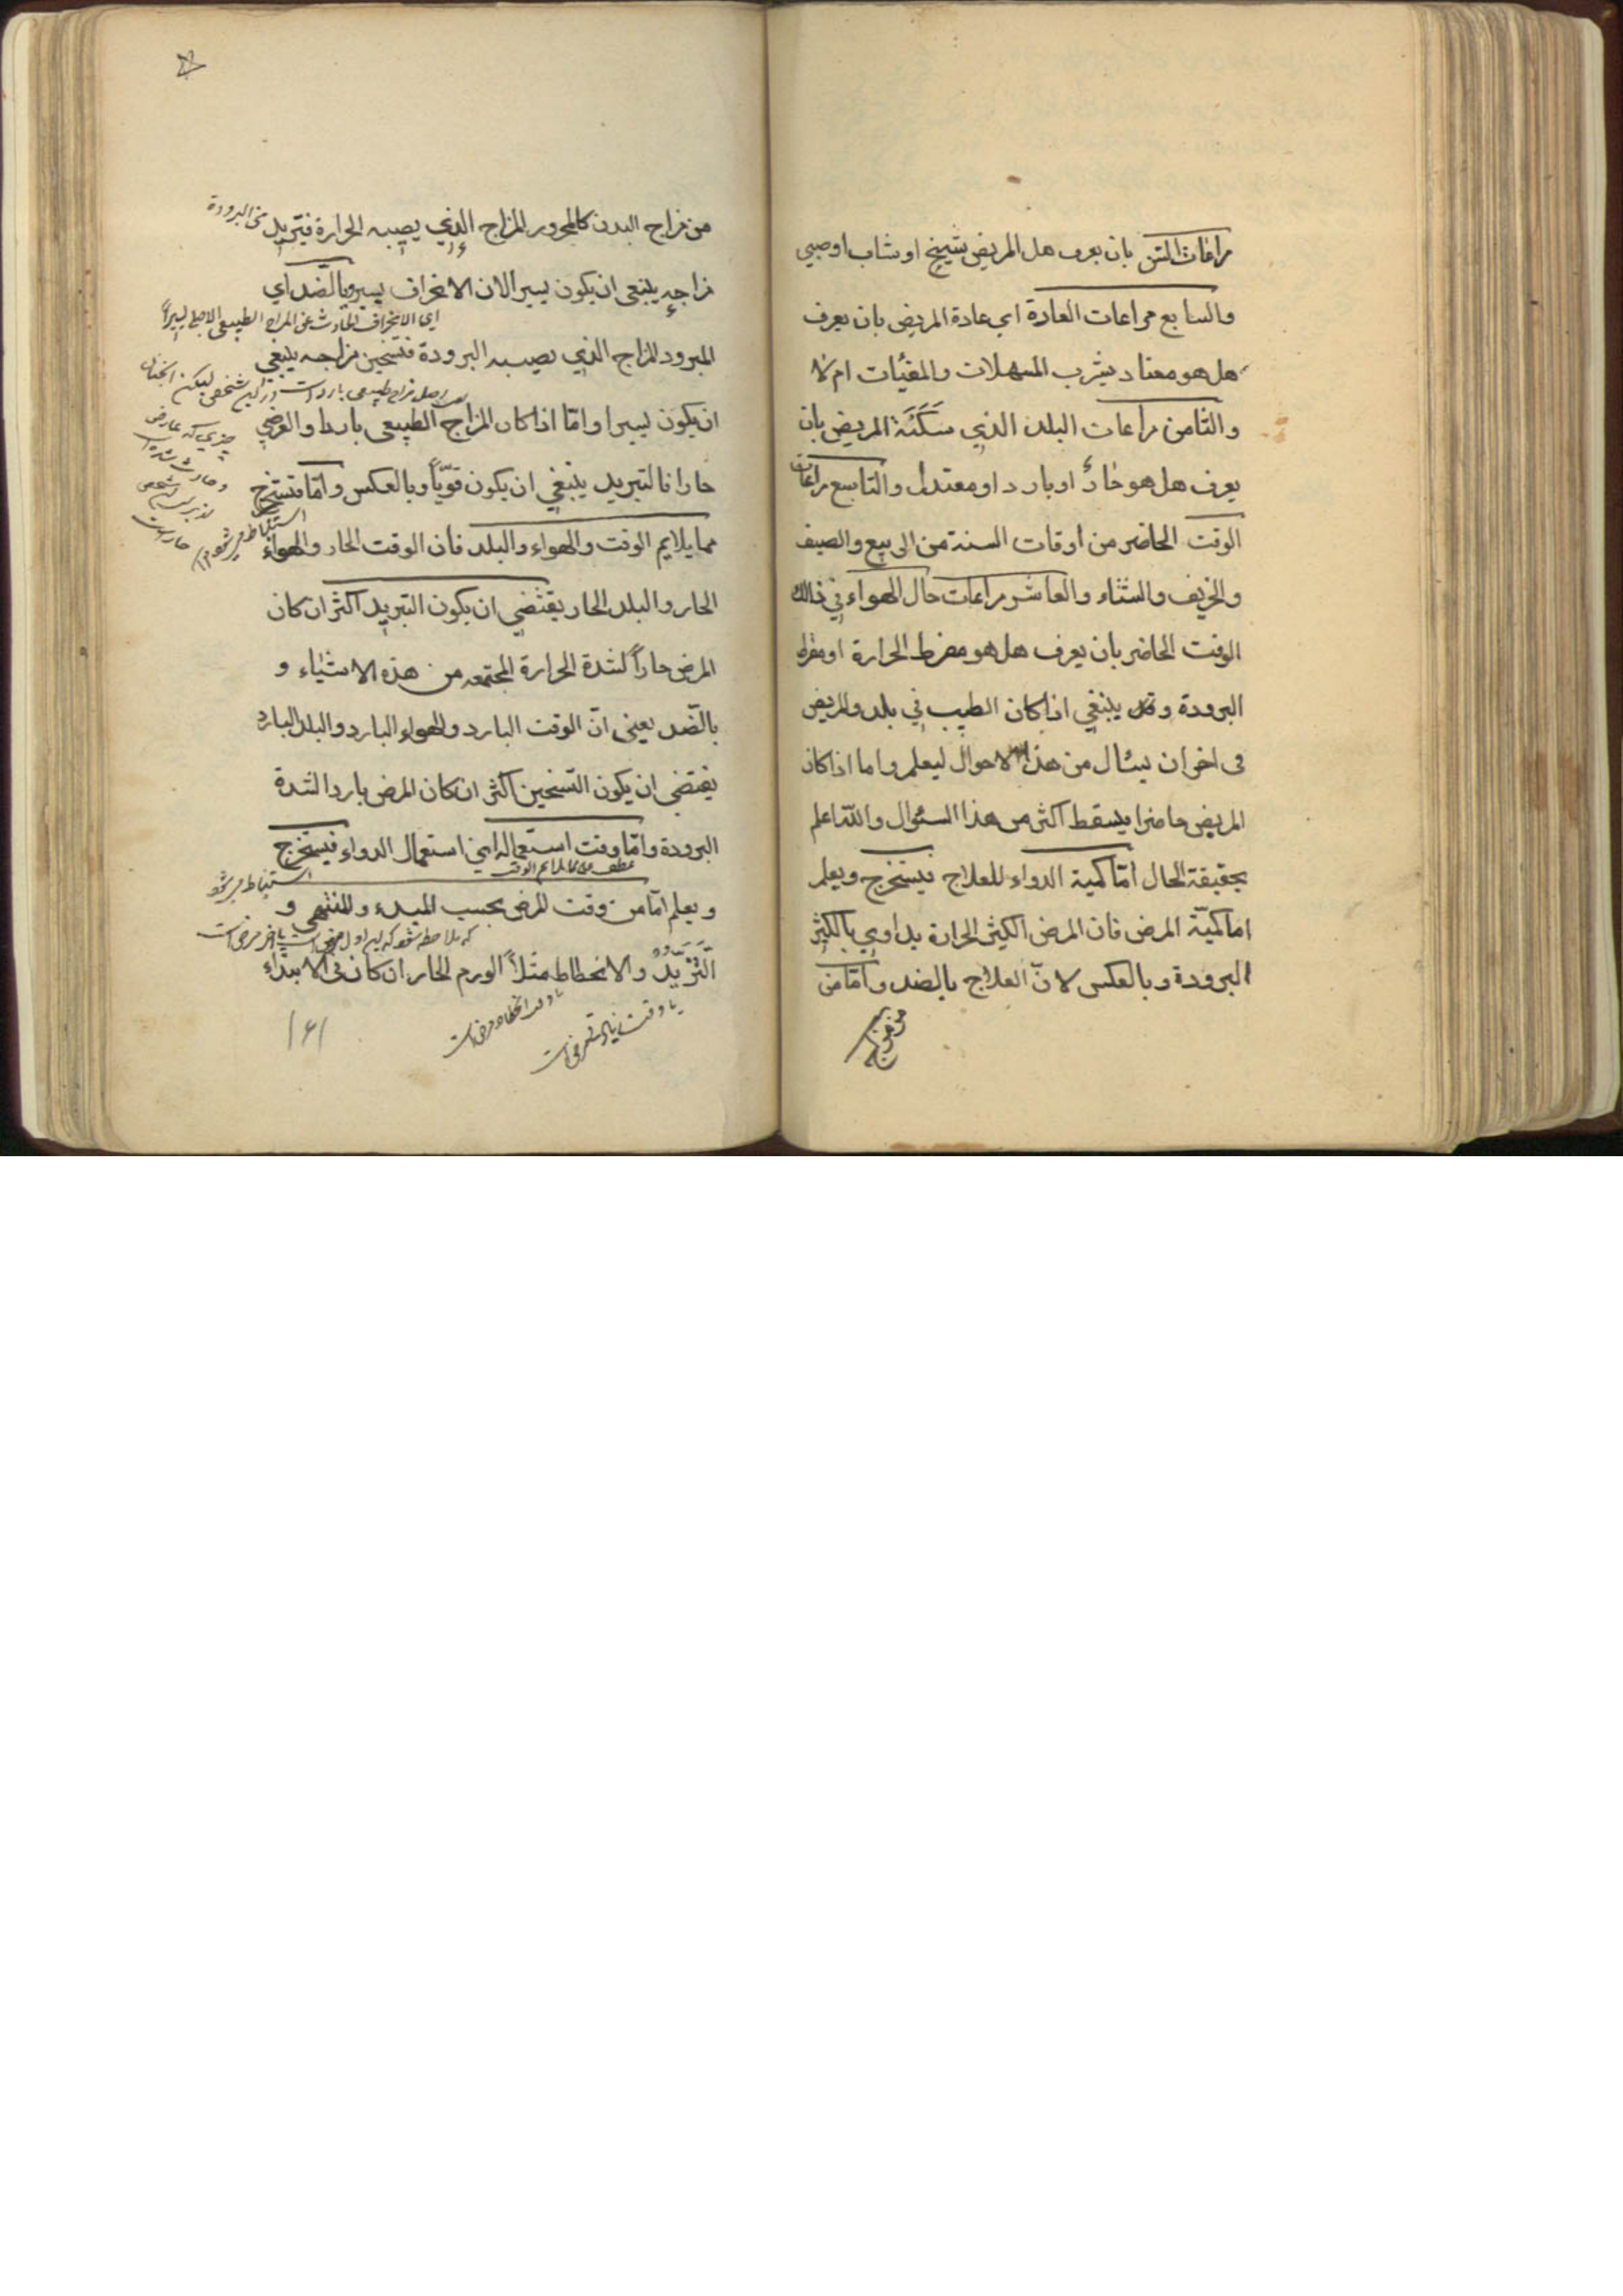 مراعات السّن بان يعرف هل المريض شيخ او شاب او صبي
والسابع مراعات العادة اي عادة المريض بان يعرف
هل هو معتاد بشرب المسهلات والمقيّات ام لا
والثامن مراعات البلد الذي سَكَنَهُ المريض بان
يعرف هل هو حارّ او بارد او معتدل والتاسع مراعات
الوقت الحاضر من اوقات السنة من الربيع والصيف
والخريف والشتاء والعاشر مراعات حال الهواء في ذالك
الوقت الحاضر بان يعرف هل هو مفرط الحرارة او مفرط
البرودة و ينبغي اذا كان الطبيب في بلد والمريض
فى اخر ان يسئال من هذه الاحوال ليعلم واما اذا كان
المريض حاضرا يسقط اكثر من هذا السئوال واللّه اعلم
بحقيقة الحال امّا كمية الدواء للعلاج فيستخرج ويعلم
اما كميّة المرض فان المرض الكثير الحرارة يداوي بالكثير
البرودة وبالعكس لانّ العلاج بالضد وامّا من
من مزاج
من مزاج البدن كالمحرور المزاج الذي يصيبه الحرارة فتبريد
من البرودة
مزاجه ينبغى ان يكون يسيرا لان الانحراف يسير وبالضد اي
اي الانحراف الحادث عن المزاج الطبيعي الاصلي يسيراً
المبرود المزاج الذي يصيبه البرودة فتسخين مزاجه ينبغي
اصل مزاج طبيعى بارد است در اين شخص ليكن
ان يكون يسيرا وامّا اذا كان المزاج الطبيعى باردا والعرضي
چيزي كه عارض
وحادث شده
حارا فالتبريد ينبغي ان يكون قويّاً وبالعكس وامّا فتستخرج
استنباط ميشود ١٢
حار است
مما يلايم الوقت والهواء والبلد فان الوقت الحار والهواء
الحار والبلد الحار يقتضي ان يكون التبريد اكثر ان كان
المرض حاراً لشدة الحرارة المجتمعه من هذه الاشياء و
بالضّد يعنى انّ الوقت البارد والهواء البارد والبلد البارد
يقتضي ان يكون التسخين اكثر ان كان المرض باردا لشدة
البرودة وامّا وقت استعماله اي استعمال الدواء فيستخرج
عطف على مما يلايم الوقت
استنباط ميشود
ويعلم امّا من وقت المرض بحسب المبدء والمنتهى و
كه ملاحظه شود كه اين اول مرض است يا اخر مرض است
التَّزَيُّدْ والانحطاط مثلاً الورم الحار ان كان فى الابتداء
يا وقت انحطاط مرض است
يا وقت زيادتى مرض است
١٤١